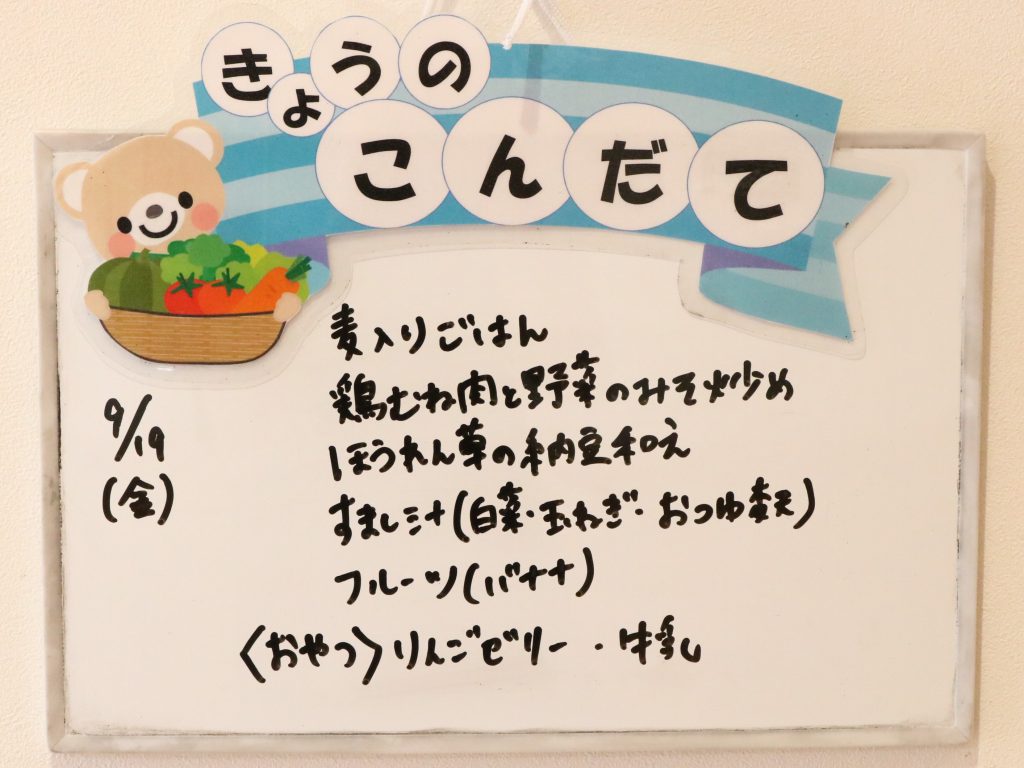 きょうの
こんだて
9/19
(金)
麦入りごはん
鶏むね肉と野菜のみそ炒め
ほうれん草の納豆和え
すまし汁(白菜・玉ねぎ・おつゆ麩)
フルーツ(バナナ)
〈おやつ〉りんごゼリー・牛乳